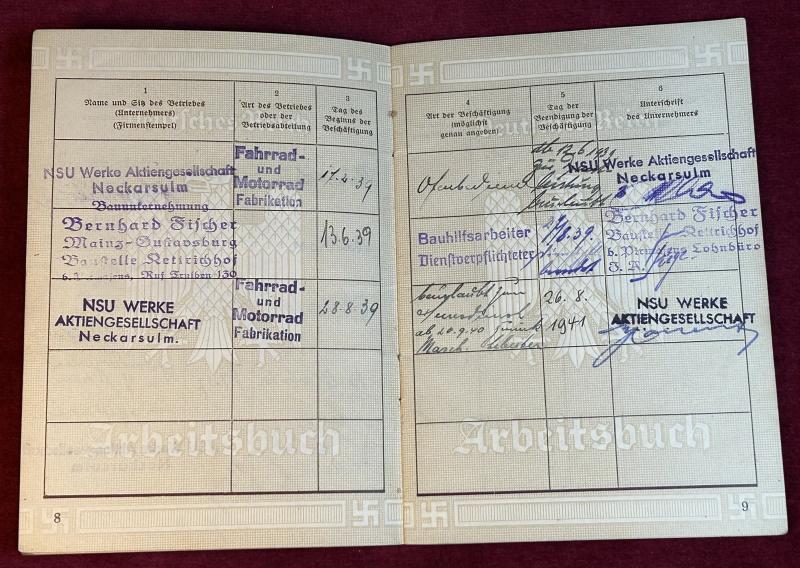 1
Name und Sitz des Betriebes
(Unternehmers)
(Firmenstempel)
2
Art des Betriebes
oder der
Betriebsabteilung
3
Tag des
Beginns der
Beschäftigung
NSU Werke Aktiengesellschaft
Neckarsulm
Fahrrad-
und
Motorrad
Fabrikation
17.2.39
Bauunternehmung
Bernhard Fischer
Mainz-Gustavsburg
Baustelle Kettrichhof
Ruf Trulben 130
13.6.39
NSU WERKE
AKTIENGESELLSCHAFT
Neckarsulm.
Fahrrad-
und
Motorrad
Fabrikation
28.8.39
Arbeitsbuch
8
4
Art der Beschäftigung
(möglichst
genau angeben)
5
Tag der
Beendigung der
Beschäftigung
6
Unterschrift
des Unternehmers
NSU Werke Aktiengesellschaft
Neckarsulm
Bauhilfsarbeiter
Dienstverpflichteter
Bernhard Fischer
Baustelle Kettrichhof
b. Pirmasens Lohnbüro
beurlaubt zum
ab 20.9.40 zurück
26.8.
1941
NSU WERKE
AKTIENGESELLSCHAFT
Arbeitsbuch
9